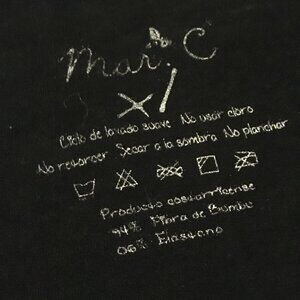 Mar. C
Ciclo de lavado suave No usar cloro
No retorcer Secar a la sombra No planchar
Producto costarricense
94% Fibra de Bambu
06% Elastano